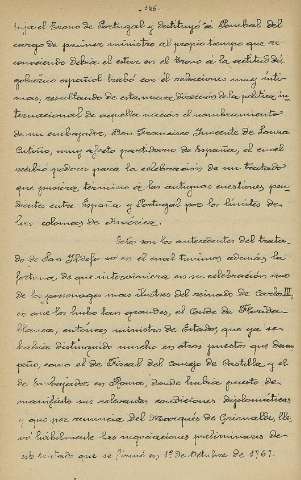 - 126 -
hija el trono de Portugal y destituyó á Pombal del
cargo de primer ministro al propio tiempo que re-
conociendo debia el éxito en el trono a la actitud del
gobierno español trabó con él relaciones muy ínti-
mas, resultando de esta nueva dirección de la política in-
ternacional de aquella nación el nombramiento
de un embajador, Don Francisco Inocente de Souza
Cutiño, muy afecto partidario de España, el cual
recibió poderes para la celebración de un tratado
que pusiera término a las antiguas cuestiones pen-
dientes entre España y Portugal por los límites de
las colonias de América.
Tales son los antecedentes del trata-
do de San Ildefonso en el cual tuvimos además la
fortuna de que interviniera en su celebración uno
de los personajes mas ilustres del reinado de Carlos III,
en que los hubo tan grandes, el Conde de Florida-
blanca, entónces ministro de Estado, que ya se
habia distinguido mucho en otros puestos que desem-
peñó, como el de Fiscal del Consejo de Castilla y el
de Embajador en Roma, donde hubia puesto de
manifiesto sus relevantes condiciones diplomáticas
y que por renuncia del Marqués de Grimaldi, lle-
vó hábilmente las negociaciones preliminares de
este tratado que se firmó en 1º de Octubre de 1767.